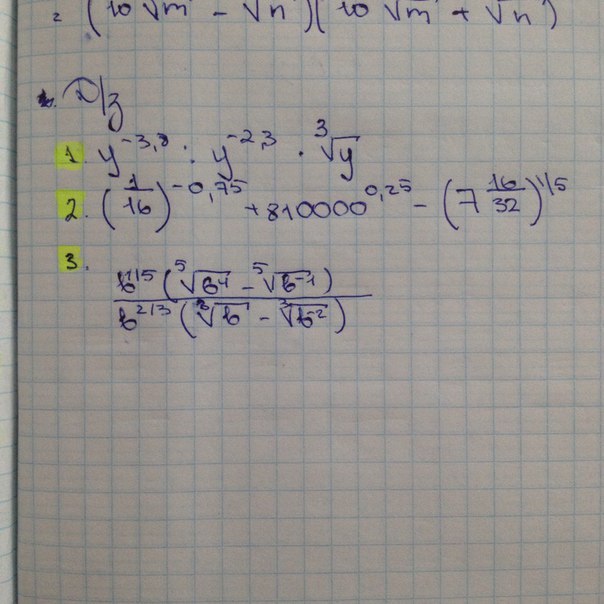 = (10√m - √n)(10√m + √n)
Д/з
1. y^-3,8 : y^-2,3 · ∛y
2. (1/16)^-0,75 + 810000^0,25 - (7 16/32)^1/5
3.
b^1/5 (⁵√b⁴ - ⁵√b^-1)
b^2/3 (∛b - ∛b^-2)